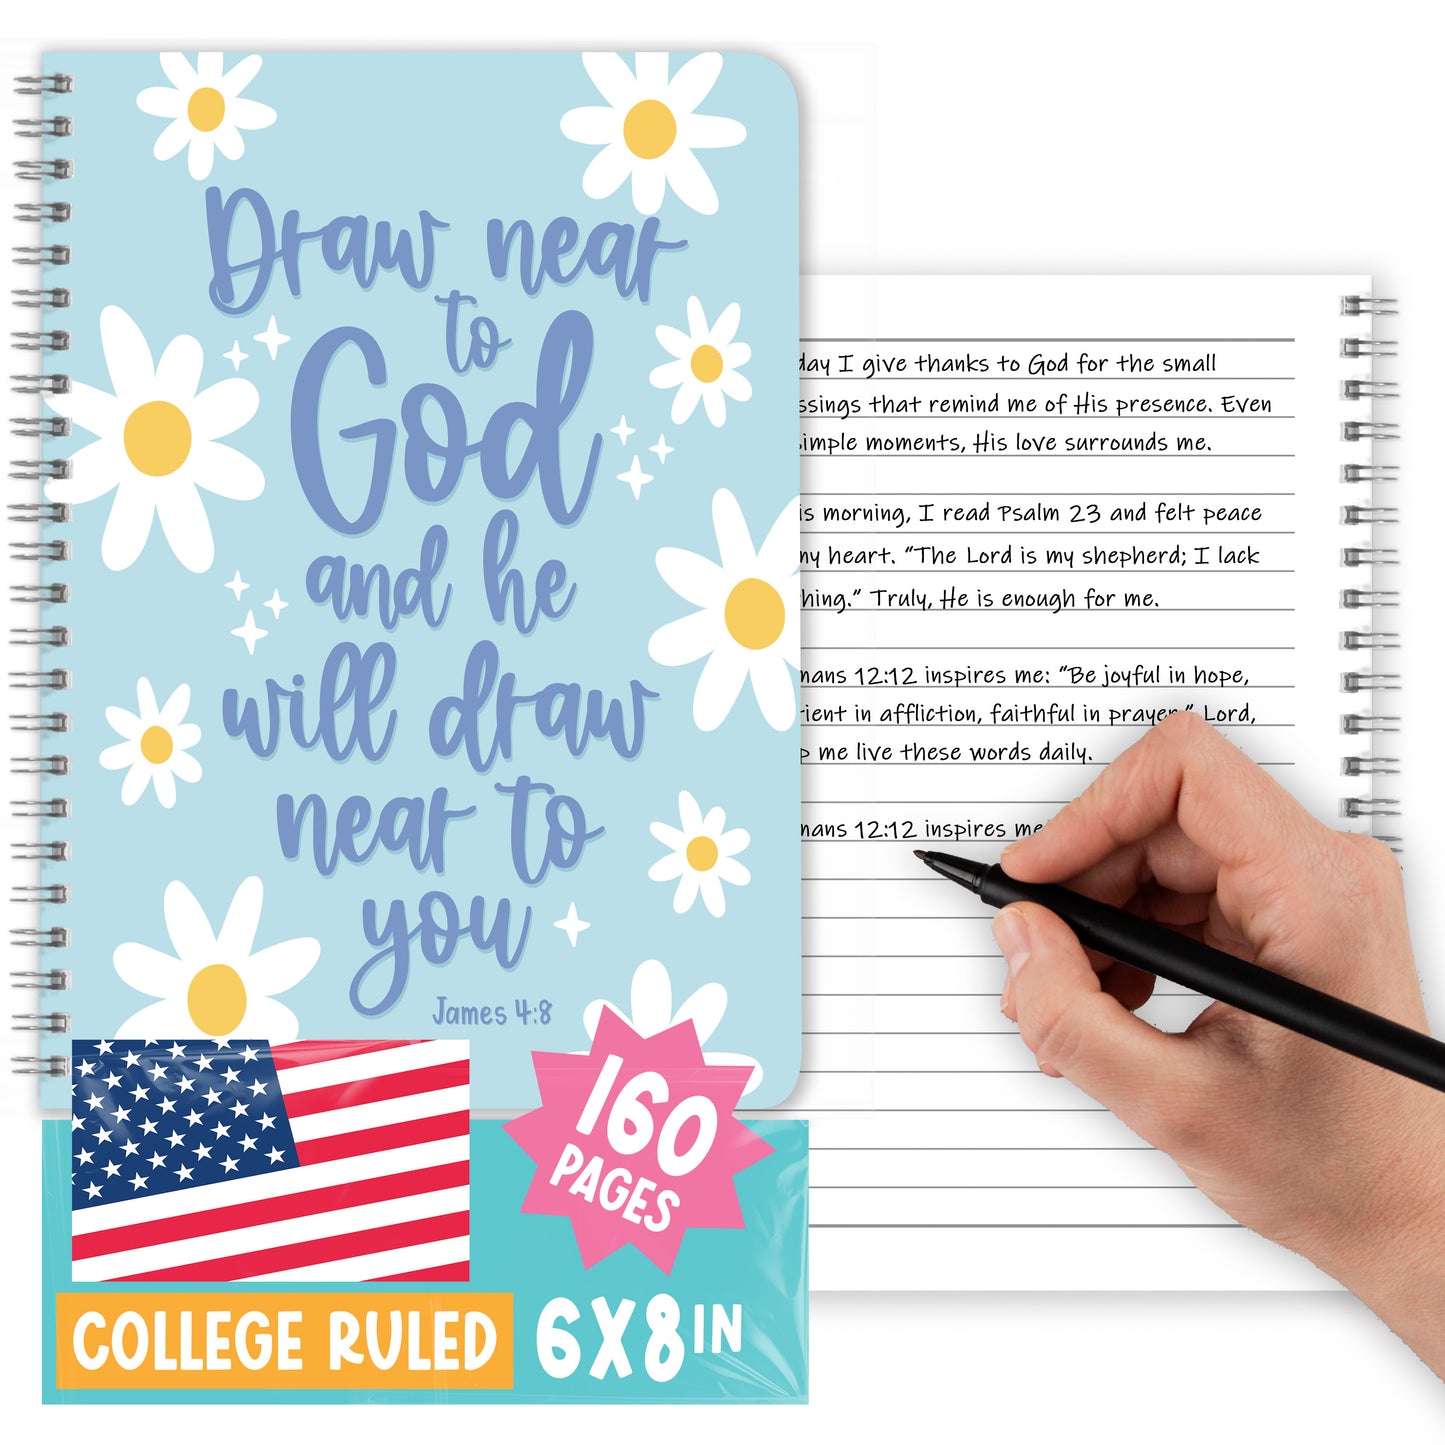 Draw near
to
God
and he
will draw
near to
you
James 4:8
160
PAGES
COLLEGE RULED
6X8 IN
I give thanks to God for the small
that remind me of His presence. Even
moments, His love surrounds me.
morning, I read Psalm 23 and felt peace
heart. “The Lord is my shepherd; I lack
Truly, He is enough for me.
12:12 inspires me: “Be joyful in hope,
in affliction, faithful in prayer.” Lord,
me live these words daily.
12:12 inspires me